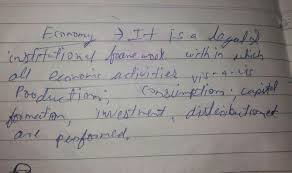 Economy → It is a legal &
institutional frame work within which
all economic activities vis-a-vis
Production; consumption, capital
formation, investment, distribution et
are performed.